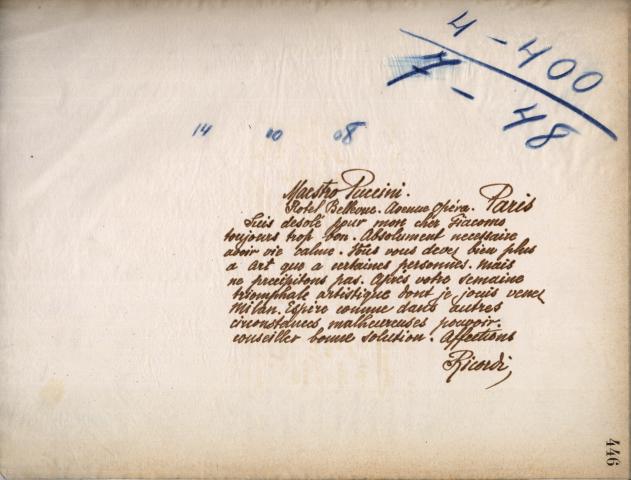 4 - 400
7 - 48
14 10 08
Maestro Puccini.
Hotel Bellevue. Avenue Opéra. Paris
Suis desolé pour mon cher Giacomo
toujours trop bon. Absolument necessaire
avoir vie calme. Vous vous devez bien plus
a art que a certaines personnes. Mais
ne precipitons pas. Après votre semaine
triomphale artistique dont je jouis venez
Milan. Espère comme dans autres
circonstances malheureuses pouvoir
conseiller bonne solution. Affections
Ricordi
446